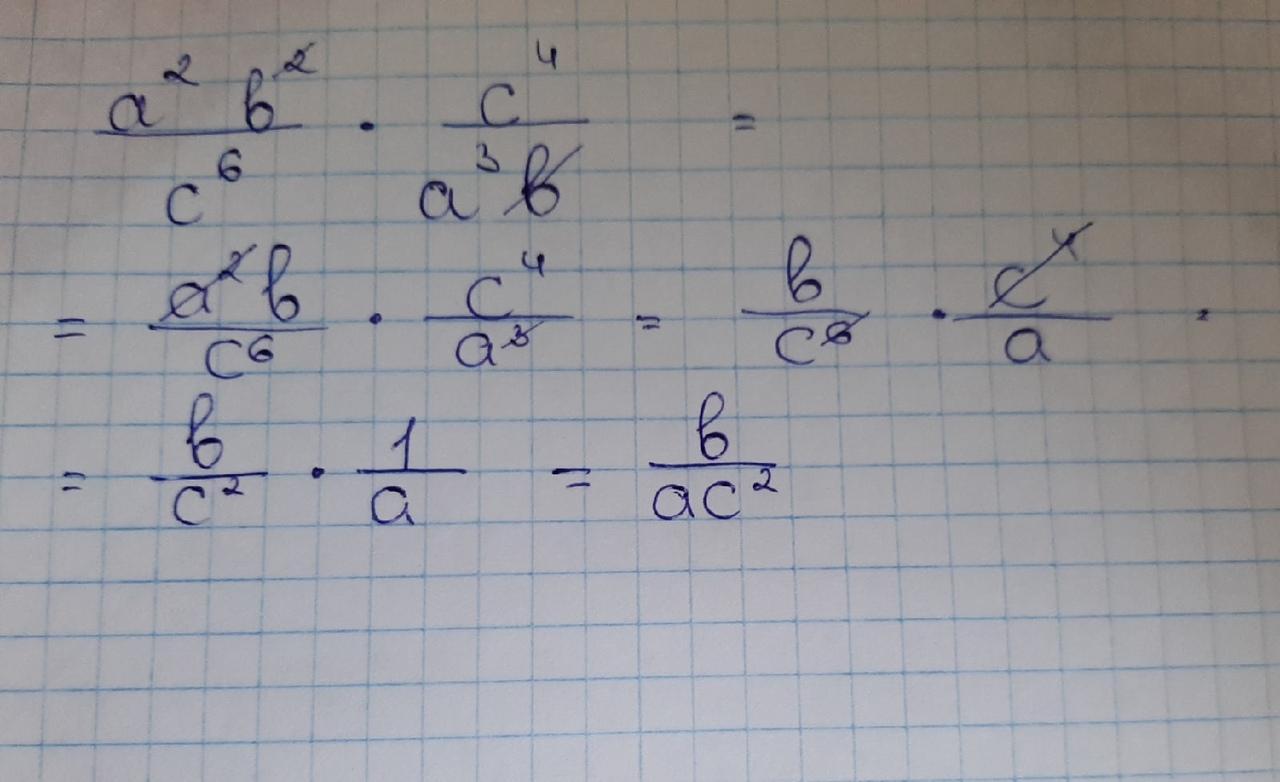 a² b² / c⁶ · c⁴ / a³ b =
= a² b / c⁶ · c⁴ / a³ = b / c⁶ · c⁴ / a =
= b / c² · 1 / a = b / ac²